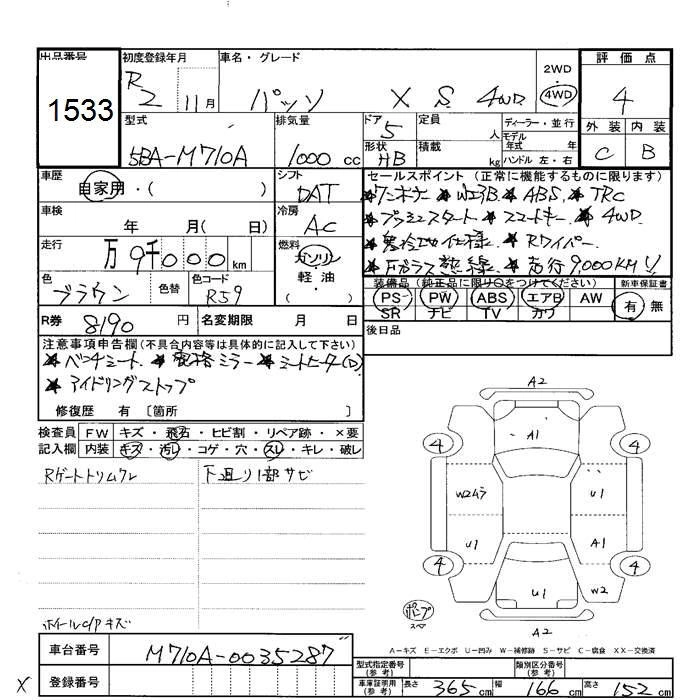 出品番号
1533
初度登録年月
R2 11月
車名・グレード
パッソ X S 4WD
2WD
・
4WD
評価点
4
外装 内装
C B
型式
5BA-M710A
排気量
1000 cc
ドア 5
形状 HB
定員 人
積載 kg
ディーラー・並行
モデル年式 年
ハンドル 左・右
車歴
自家用・( )
シフト
DAT
車検
年 月( 日)
冷房
AC
走行
万 9千000 km
燃料
ガソリン
軽油
( )
色
ブラウン
色替
色コード
R59
R券 8190 円
名変期限 月 日
セールスポイント(正常に機能するものに限ります)
★ワンオーナー ★Wエアb ★ABS ★TRC
★プッシュスタート ★スマートキー ★4WD
★寒冷地仕様 ★Rワイパー
★Fガラス熱線 ★走行9,000KM
装備品(純正品に限り○をつけてください)
PS PW ABS エアB AW
SR ナビ TV カワ
新車保証書
有・無
後日品
注意事項申告欄(不具合内容等は具体的に記入して下さい)
★ベンチシート ★電格ミラー ★シートヒーター(D)
★アイドリングストップ
修復歴 有 〔箇所 〕
検査員
記入欄
FW キズ・飛石・ヒビ割・リペア跡・×要
内装 キズ・汚レ・コゲ・穴・スレ・キレ・破レ
Rゲートトリムワレ
下廻り1部サビ
ホイールc/Pキズ
A2
A1
4
4
W2ムラ
U1
U1
A1
4
4
U1
W2
A2
スペア
A-キズ E-エクボ U-凹み W-補修跡 S-サビ C-腐食 XX-交換済
車台番号
M710A-0035287
登録番号
X
型式指定番号
(参考)
類別区分番号
(参考)
車庫証明用
(参考)
長さ 365 cm 幅 166 cm 高さ 152 cm